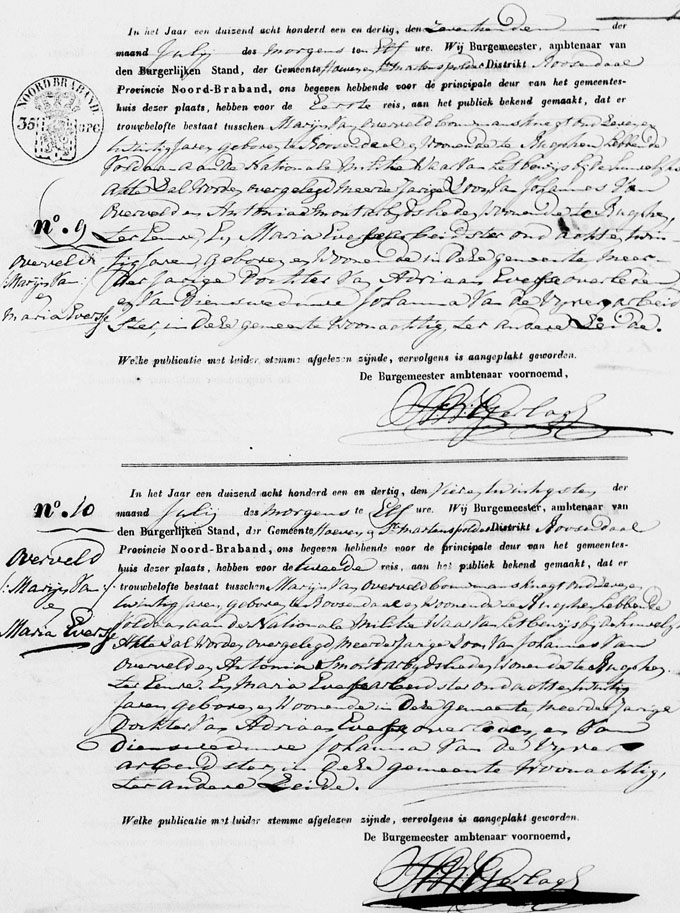 In het Jaar een duizend acht honderd een en dertig, den zeventienden der
maand Julij des morgens ten Elf ure. Wij Burgemeester, ambtenaar van
den Burgerlijken Stand, der Gemeente Hoeven en St. Martenspolder Distrikt Roosendaal
Provincie Noord-Braband, ons begeven hebbende voor de principale deur van het gemeentes-
huis dezer plaats, hebben voor de Eerste reis, aan het publiek bekend gemaakt, dat er
trouwbelofte bestaat tusschen Marijn Van Overveld bouwmansknegt oud
twintig Jaren geboren te Roosendaal en Woonende te Rugphen hebbende
voldaan aan de Nationale Militie Waar Van het bewijs bij de huwelijks
akte Zal Worden overgelegd meerderjarige Zoon Van Johannes Van
Overveld en Antonia Smont arbeidslieden Woonende te Rugphen
ter Eenre, En Maria Eversse arbeidster oud acht en twin-
tig Jaren, geboren en Woonende in deze gemeente meer-
derjarige Dochter Van Adriaan Eversse overleden
en Van Diens weduwe Johanna Van de Vyver arbeid-
ster, in deze gemeente Woonachtig, ter andere Zeide.
NOORD BRABAND
35
n°. 9
Overveld
Marijn Van
en
Maria Eversse
Welke publicatie met luider stemme afgelezen zijnde, vervolgens is aangeplakt geworden.
De Burgemeester ambtenaar voornoemd,
In het Jaar een duizend acht honderd een en dertig, den Vier en twintigsten der
maand Julij des morgens te Elf ure. Wij Burgemeester, ambtenaar van
den Burgerlijken Stand, der Gemeente Hoeven en St. Martenspolder Distrikt Roosendaal
Provincie Noord-Braband, ons begeven hebbende voor de principale deur van het gemeentes-
huis dezer plaats, hebben voor de tweede reis, aan het publiek bekend gemaakt, dat er
trouwbelofte bestaat tusschen Marijn Van Overveld bouwmansknegt oud
twintig Jaren, geboren te Roosendaal en Woonende te Rugphen hebbende
voldaan aan de Nationale Militie Waar Van het bewijs bij de huwelijks
Akte Zal Worden overgelegd, meerderjarige Zoon Van Johannes Van
Overveld en Antonia Smont arbeidslieden Wonende te Rugphen
ter Eenre. En Maria Eversse arbeidster oud acht en twintig
Jaren geboren en Woonende in deze gemeente meerderjarige
Dochter Van Adriaan Eversse overleden, en Van
Diens weduwe Johanna Van de Vyver
arbeidster, in deze gemeente Woonachtig,
ter andere Zeide.
n°. 10
Overveld
Marijn Van
en
Maria Eversse
Welke publicatie met luider stemme afgelezen zijnde, vervolgens is aangeplakt geworden.
De Burgemeester ambtenaar voornoemd,